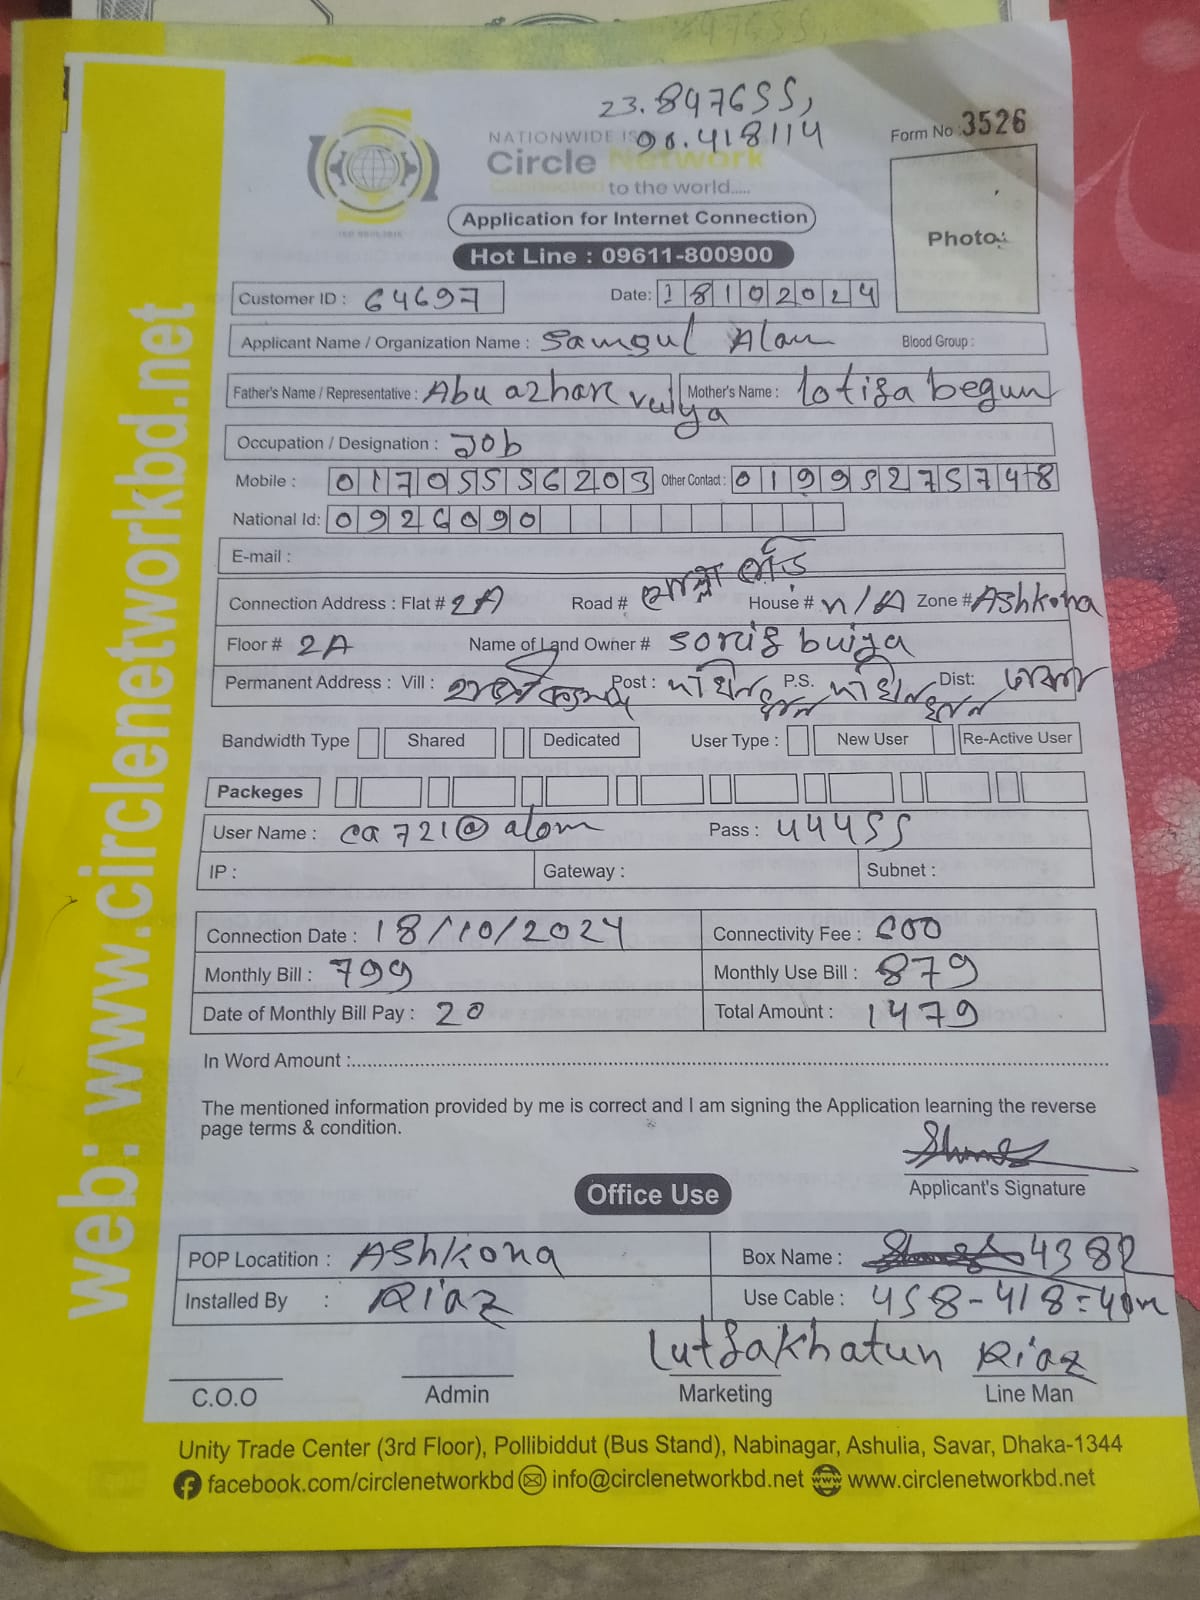 23.847655,
90.418114
Form No : 3526
NATIONWIDE IS
Circle Network
Connected to the world.....
Photo
Application for Internet Connection
Hot Line : 09611-800900
Customer ID : 64697 Date: 18102024
Applicant Name / Organization Name : Samgul Alam Blood Group :
Father's Name / Representative : Abu azhar vuiya Mother's Name : lotifa begum
Occupation / Designation : Job
Mobile : 01705556203 Other Contact : 01995275748
National Id: 0926090
E-mail :
Connection Address : Flat # 2A Road # House # n/A Zone # Ashkona
Floor # 2A Name of Land Owner # sorif buiya
Permanent Address : Vill : Post : P.S. Dist:
Bandwidth Type Shared Dedicated User Type : New User Re-Active User
Packeges
User Name : ca721@alom Pass : 44455
IP : Gateway : Subnet :
Connection Date : 18/10/2024 Connectivity Fee : 600
Monthly Bill : 799 Monthly Use Bill : 879
Date of Monthly Bill Pay : 20 Total Amount : 1479
In Word Amount :
The mentioned information provided by me is correct and I am signing the Application learning the reverse
page terms & condition.
Applicant's Signature
Office Use
POP Locatition : Ashkona Box Name : 4382
Installed By : Riaz Use Cable : 458-418=40m
Lutfakhatun Riaz
C.O.O Admin Marketing Line Man
Unity Trade Center (3rd Floor), Pollibiddut (Bus Stand), Nabinagar, Ashulia, Savar, Dhaka-1344
facebook.com/circlenetworkbd info@circlenetworkbd.net www.circlenetworkbd.net
web: www.circlenetworkbd.net